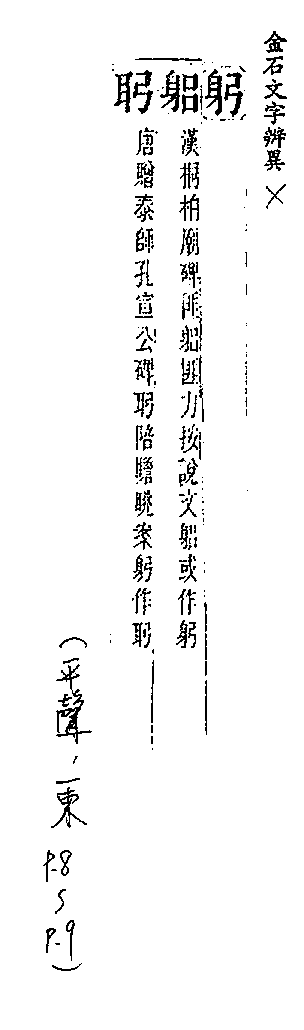 金石文字辨異 ×
躬
躳
漢桐柏廟碑匪躳匪力按說文躳或作躬
唐贈泰師孔宣公碑陪贍眺案躬作
(平聲,一東 P.8 S P.9)